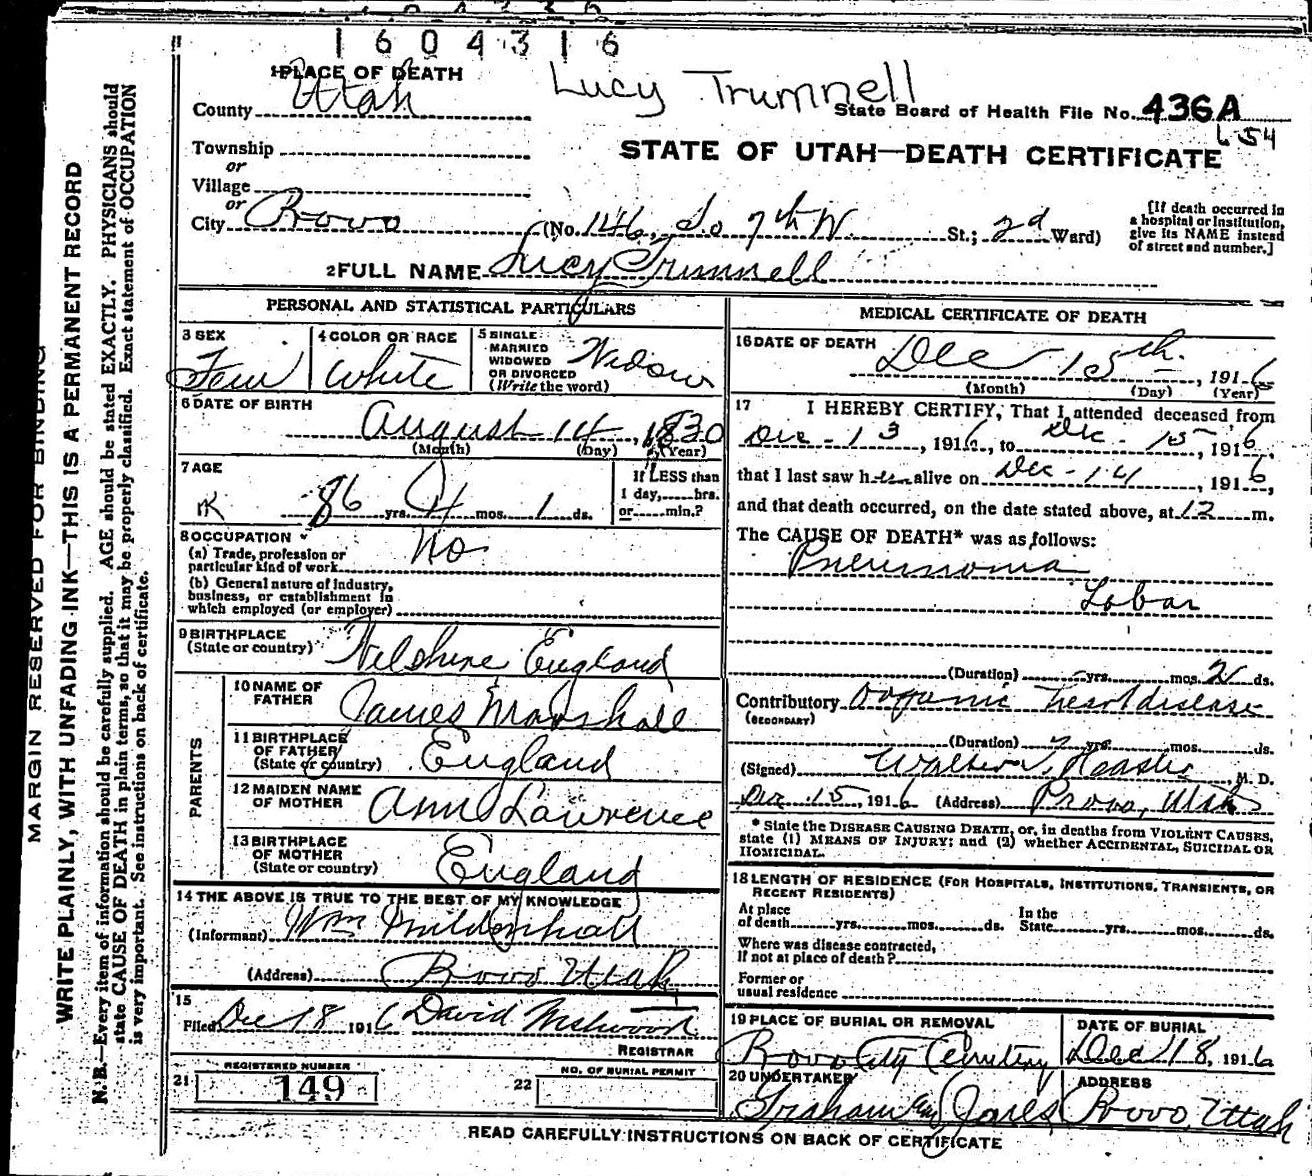 1604316
1 PLACE OF DEATH
Lucy Trumnell
County Utah
State Board of Health File No. 436A
654
Township
or
Village
or
STATE OF UTAH—DEATH CERTIFICATE
City Provo (No. 146, So 7th W. St.; 2d Ward)
[If death occurred in
a hospital or institution,
give its NAME instead
of street and number.]
2 FULL NAME Lucy Trumnell
PERSONAL AND STATISTICAL PARTICULARS
3 SEX
Fem
4 COLOR OR RACE
White
5 SINGLE
MARRIED
WIDOWED
OR DIVORCED
(Write the word)
Widow
6 DATE OF BIRTH
August 14, 1830
(Month) (Day) (Year)
7 AGE
86 yrs. 4 mos. 1 ds.
If LESS than
1 day, hrs.
or min.?
8 OCCUPATION
(a) Trade, profession or
particular kind of work No
(b) General nature of industry,
business, or establishment in
which employed (or employer)
9 BIRTHPLACE
(State or country) Wilshire England
PARENTS
10 NAME OF
FATHER James Marshall
11 BIRTHPLACE
OF FATHER
(State or country) England
12 MAIDEN NAME
OF MOTHER Ann Lawrence
13 BIRTHPLACE
OF MOTHER
(State or country) England
14 THE ABOVE IS TRUE TO THE BEST OF MY KNOWLEDGE
(Informant) Wm Mildenhall
(Address) Provo Utah
15
Filed Dec 18 1916 David
REGISTRAR
21 REGISTERED NUMBER
149
22 NO. OF BURIAL PERMIT
MEDICAL CERTIFICATE OF DEATH
16 DATE OF DEATH
Dec 15th, 1916
(Month) (Day) (Year)
17 I HEREBY CERTIFY, That I attended deceased from
Dec - 13, 1916, to Dec - 15, 1916,
that I last saw her alive on Dec - 14, 1916,
and that death occurred, on the date stated above, at 12 m.
The CAUSE OF DEATH* was as follows:
Pneumonia
Lobar
(Duration) yrs. mos. 2 ds.
Contributory Organic heart disease
(SECONDARY)
(Duration) yrs. mos. ds.
(Signed) M. D.
Dec 15, 1916 (Address) Provo, Utah
* State the DISEASE CAUSING DEATH, or, in deaths from VIOLENT CAUSES,
state (1) MEANS OF INJURY; and (2) whether ACCIDENTAL, SUICIDAL OR
HOMICIDAL.
18 LENGTH OF RESIDENCE (FOR HOSPITALS, INSTITUTIONS, TRANSIENTS, OR
RECENT RESIDENTS)
At place
of death yrs. mos. ds.
In the
State yrs. mos. ds.
Where was disease contracted,
if not at place of death?
Former or
usual residence
19 PLACE OF BURIAL OR REMOVAL
Provo City Cemetery
DATE OF BURIAL
Dec 18, 1916
20 UNDERTAKER
Graham Jones
ADDRESS
Provo Utah
READ CAREFULLY INSTRUCTIONS ON BACK OF CERTIFICATE
MARGIN RESERVED FOR BINDING
WRITE PLAINLY, WITH UNFADING INK—THIS IS A PERMANENT RECORD
N. B.—Every item of information should be carefully supplied. AGE should be stated EXACTLY. PHYSICIANS should
state CAUSE OF DEATH in plain terms, so that it may be properly classified. Exact statement of OCCUPATION
is very important. See instructions on back of certificate.